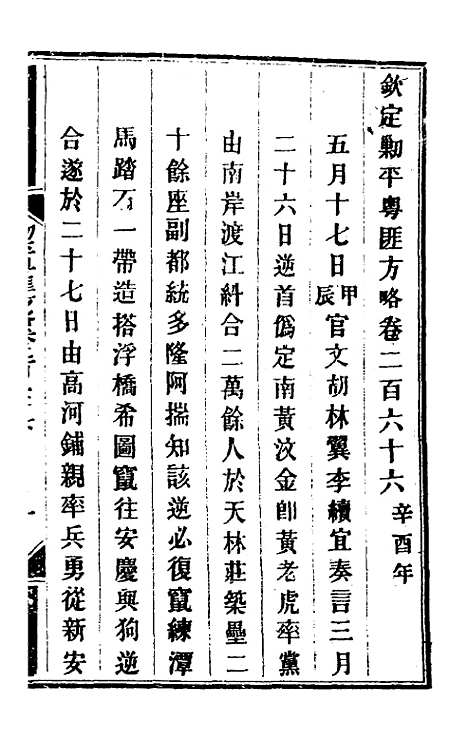 欽定勦平粵匪方略卷二百六十六 辛酉年
五月十七日甲辰官文胡林翼李續宜奏言三月
二十六日逆首僞定南黃汶金卽黃老虎率黨
由南岸渡江糾合二萬餘人於天林莊築壘二
十餘座副都統多隆阿揣知該逆必復竄練潭
馬踏石一帶造搭浮橋希圖竄往安慶與狗逆
合遂於二十七日由高河鋪親率兵勇從新安